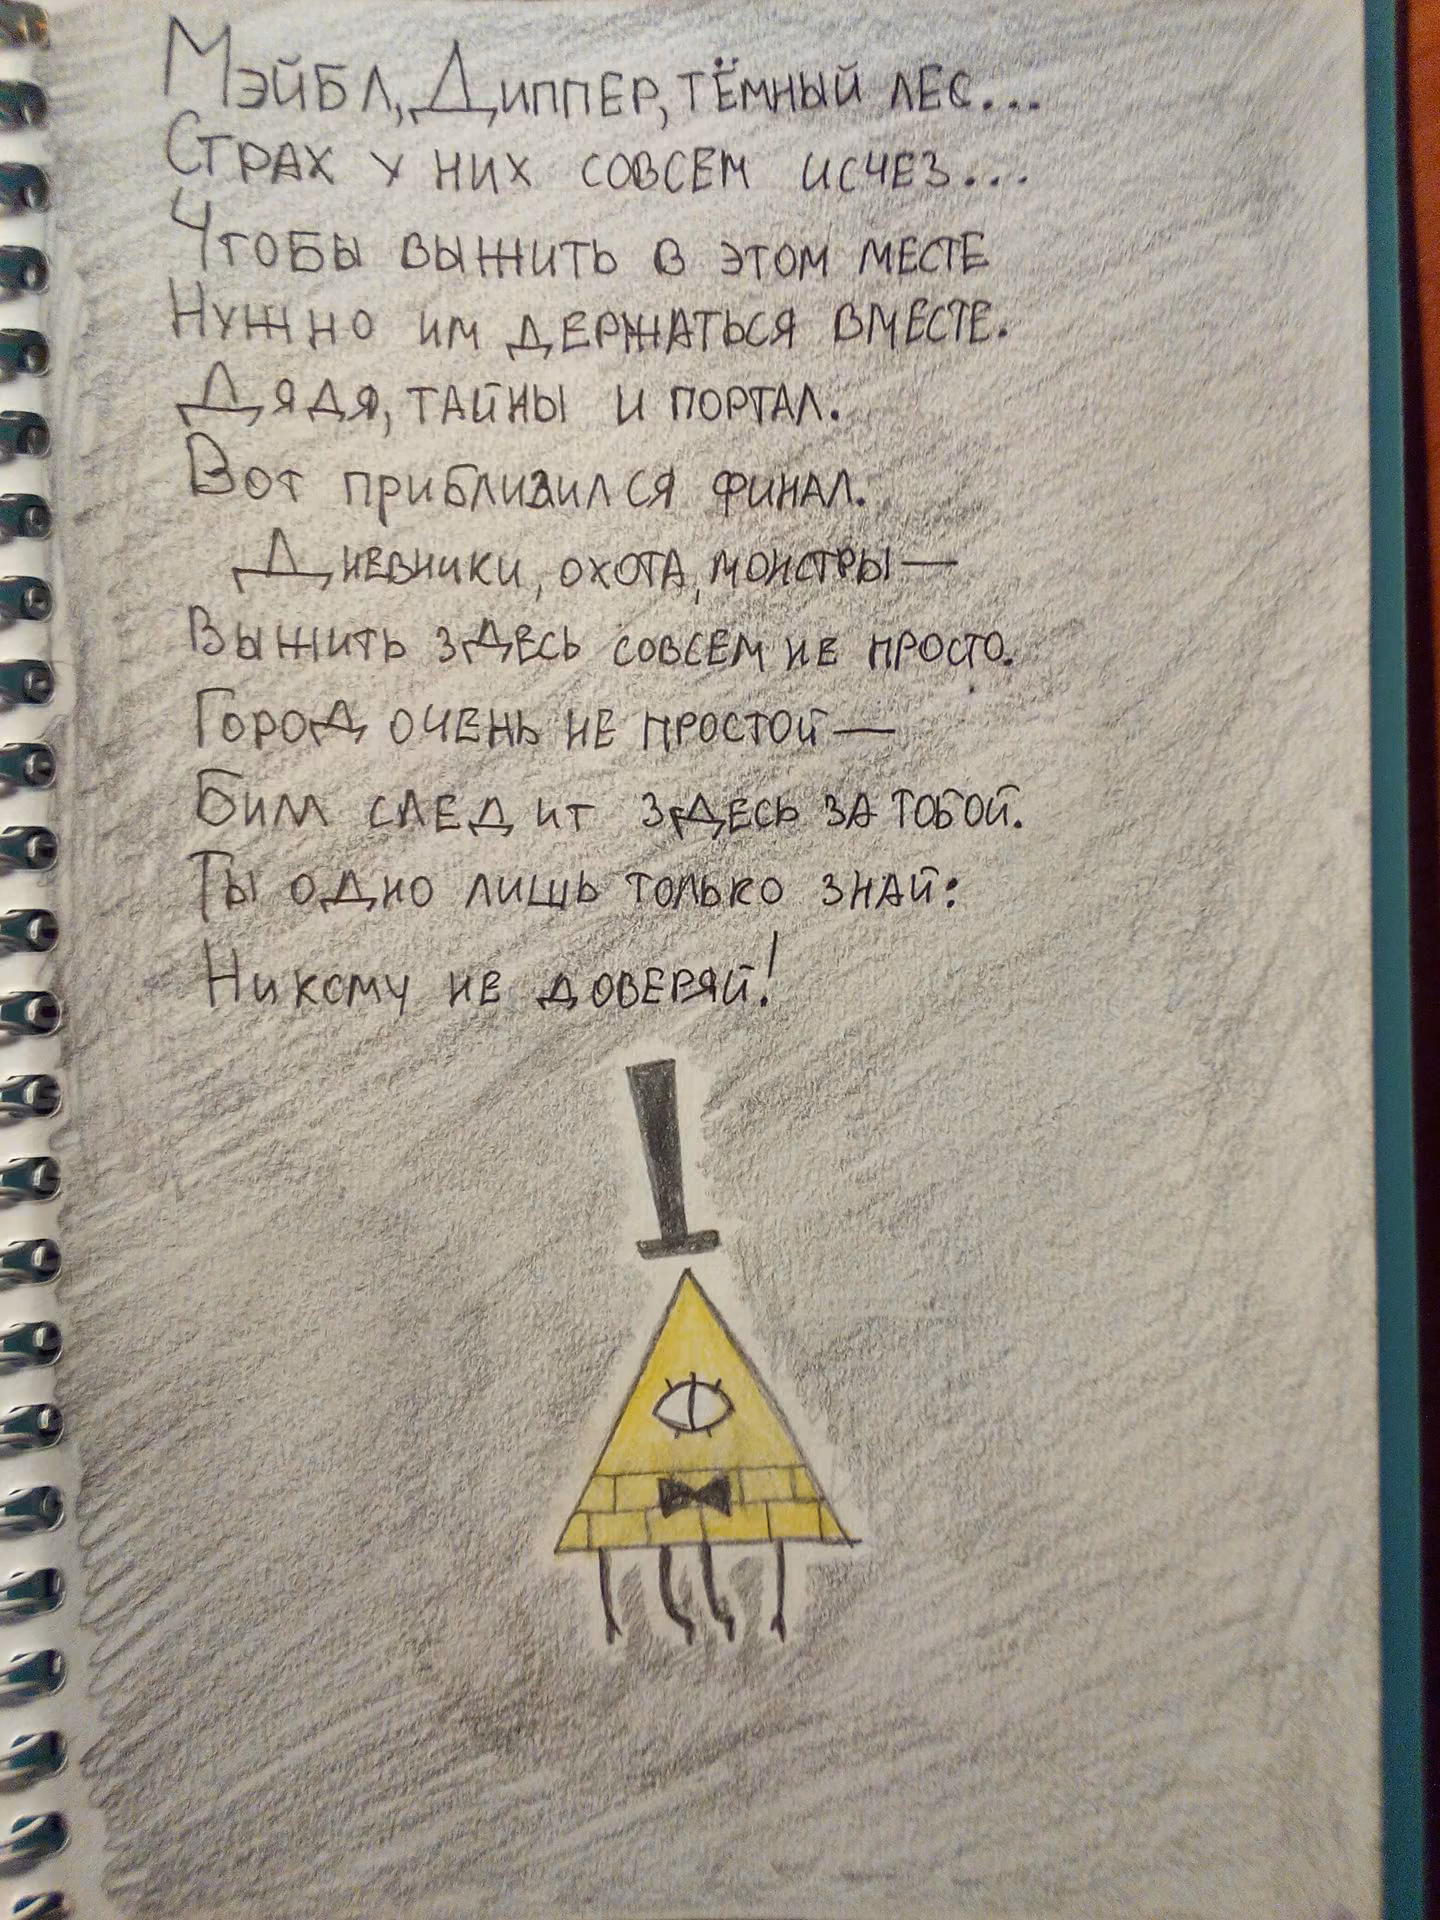 Мэйбл, Диппер, тёмный лес...
Страх у них совсем исчез...
Чтобы выжить в этом месте
Нужно им держаться вместе.
Дядя, тайны и портал.
Вот приблизился финал.
Дневники, охота, монстры—
Выжить здесь совсем не просто.
Город очень не простой—
Билл следит здесь за тобой.
Ты одно лишь только знай:
Никому не доверяй!